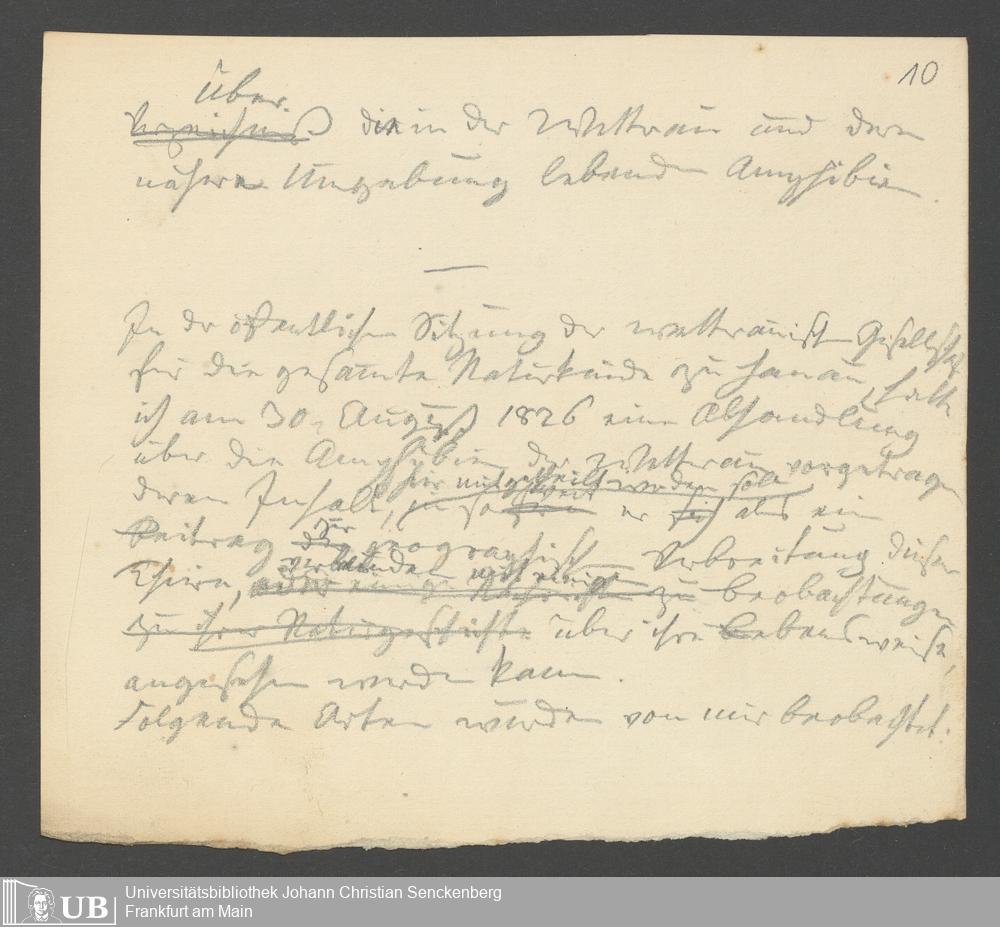 10
Über
Verzeichniß die in der Wetterau und dern
nähern Umgebung lebenden Amphibien.
—
In der öffentlichen Sitzung der wetterauisch Gesellschaft
für die gesamte Naturkunde zu Hanau, hatte
ich am 30. August 1826 eine Abhandlung
über die Amphibien der Wetterau vorgetragen
hier mitgetheilt werden soll
deren Inhalt, in so weit er sich als ein
der
Beitrag geographisch Verbreitung dieser
verbunden mit einigen
Thiere, oder einige Nachrichten zu Beobachtungen
zu ihrer Naturgeschichte über ihre Lebensweise,
angesehen werden kann.
Folgende Arten wurden von mir beobachtet:
UB
Universitätsbibliothek Johann Christian Senckenberg
Frankfurt am Main